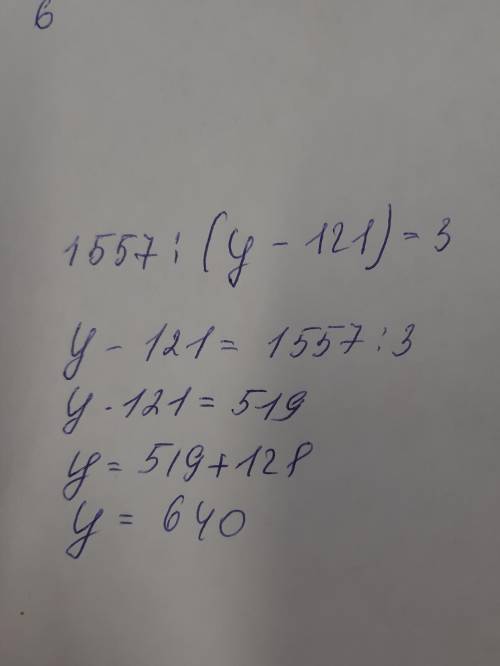 6
1557 : (y - 121) = 3
y - 121 = 1557 : 3
y - 121 = 519
y = 519 + 121
y = 640